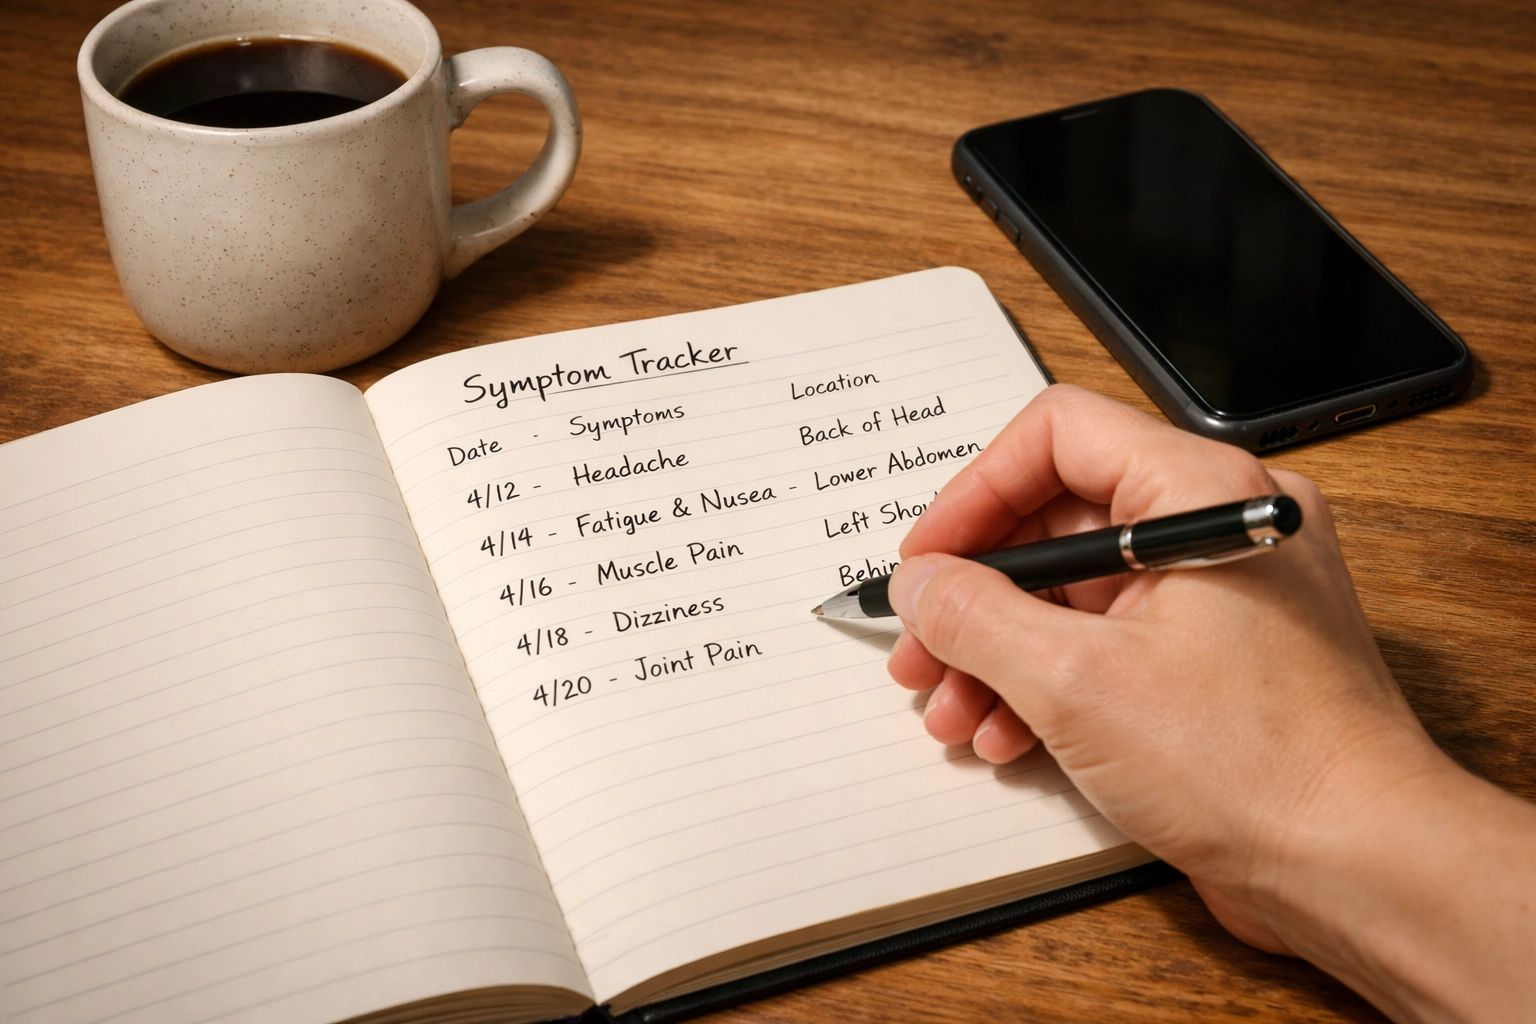 Symptom Tracker
Date - Symptoms Location
4/12 - Headache Back of Head
4/14 - Fatigue & Nusea - Lower Abdomen
4/16 - Muscle Pain Left
4/18 - Dizziness
4/20 - Joint Pain